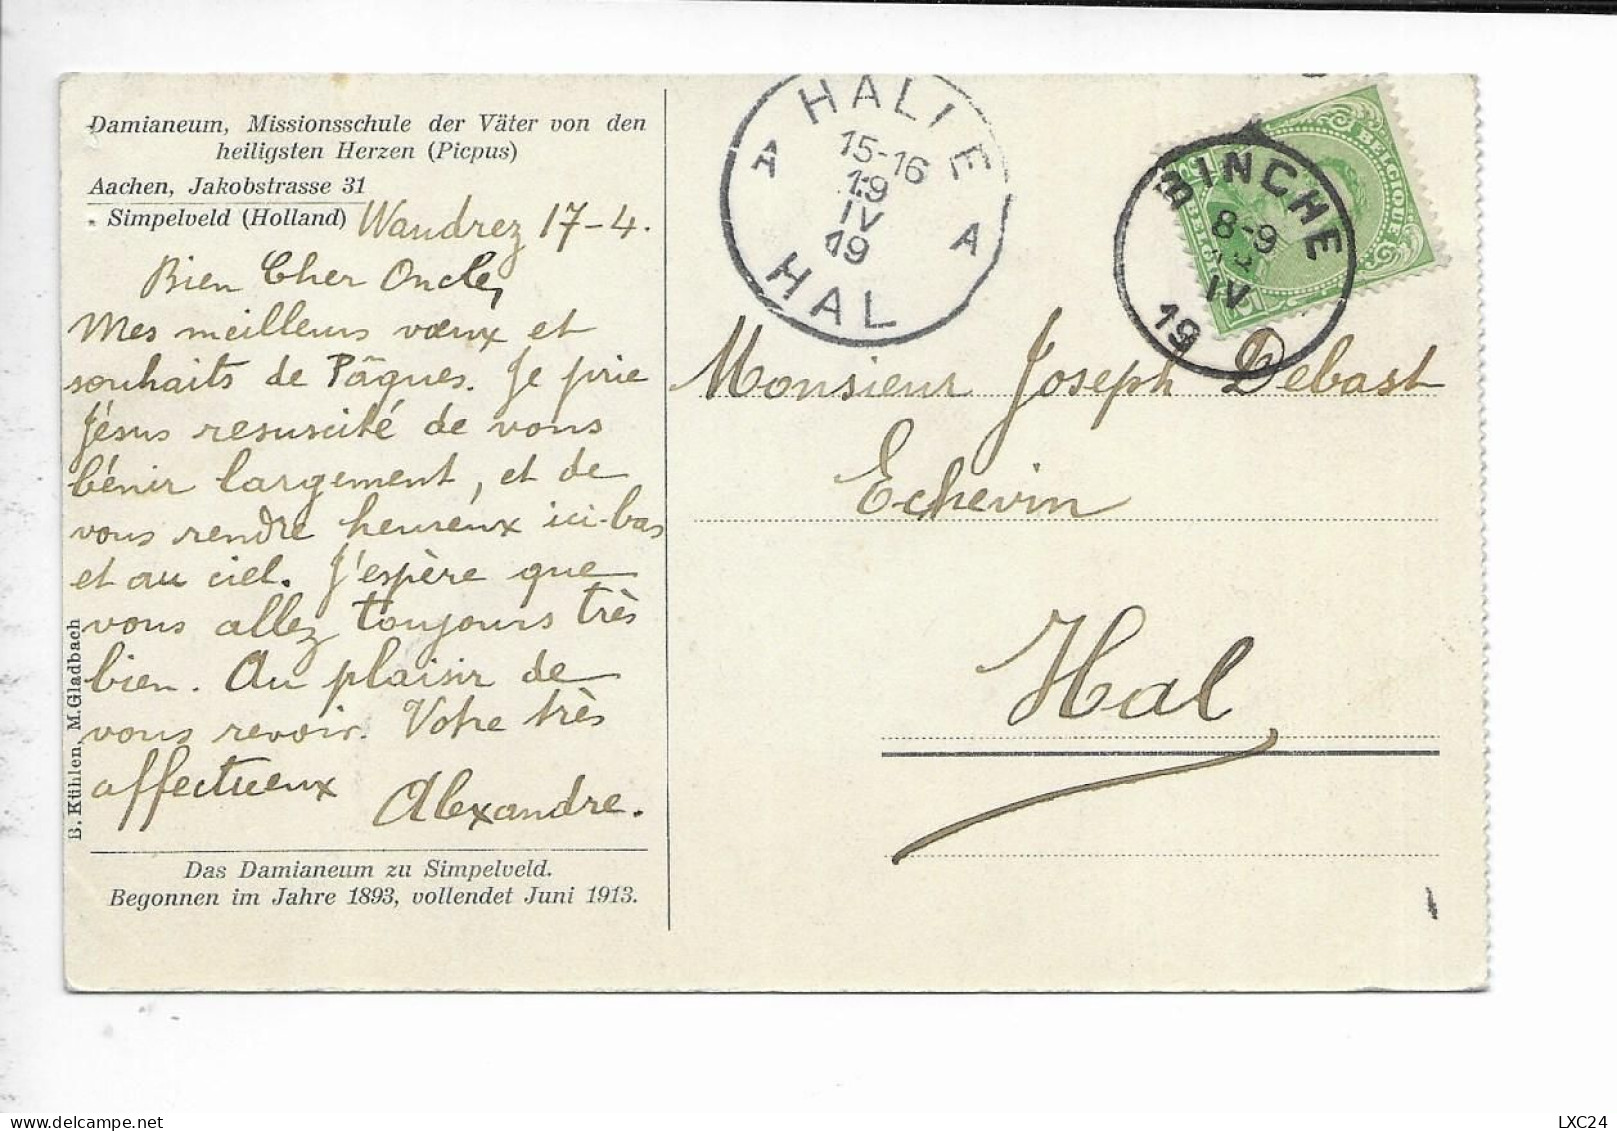 Damianeum, Missionsschule der Väter von den
heiligsten Herzen (Picpus)
Aachen, Jakobstrasse 31
Simpelveld (Holland)
Waudrez 17-4.
Bien Cher Oncle,
Mes meilleurs vœux et
souhaits de Pâques. Je prie
Jésus resuscité de vous
bénir largement, et de
vous rendre heureux ici-bas
et au ciel. J'espère que
vous allez toujours très
bien. Au plaisir de
vous revoir. Votre très
affectueux
Alexandre.
Das Damianeum zu Simpelveld.
Begonnen im Jahre 1893, vollendet Juni 1913.
B. Kühlen, M.Gladbach
HALLE
A A
15-16
19
IV
19
HAL
BINCHE
8-9
IV
19
BELGIQUE
Monsieur Joseph Debast
Echevin
Hal
LXC24